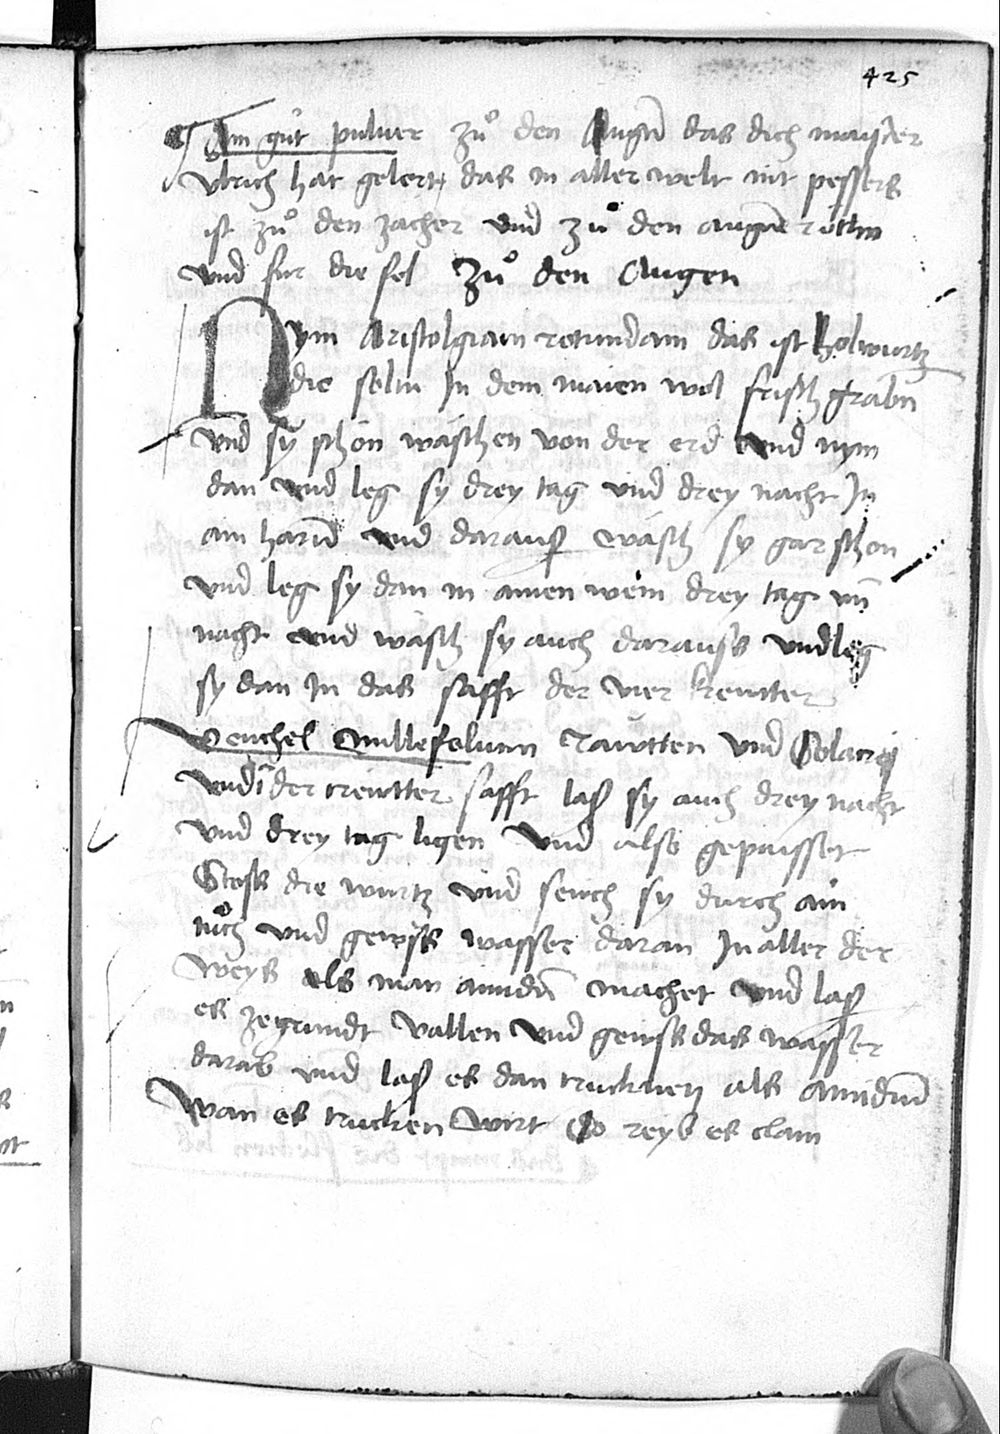 425
Ain gůt puluer zů den Augen̄ das dich maister
vlrich hat gelert das in aller welt nit pessers
ist zů den zächer vnd zů den augen̄ röttin
vnd fur die fel zů den Augen
Nym Aristolgiam rotundam das ist holwurtz
die soltu In dem maien wol frisch grabn̄
vnd sy schön wäschen von der erd vnd nym
dan vnd leg sy drey tag vnd drey nacht In
ain harn̄ vnd darauß wäsch sy gar schon
vnd leg sy dan in ainen wein drey tag vn̄
nacht vnd wäsch sy auch darauss vnd leg
sy dan In das safft der vier kreutter
Venchel millefolium Rawtten vnd
vnd Ī der creutter safft laß sy auch drey nacht
vnd drey tag ligen vnd also gepaisset
Stoss die wurtz vnd seuch sy durch ain
tůch vnd gewss wasser daran In aller der
weys als man amidu̅ machet vnd laß
es ze grundt vallen vnd gewss das wasser
darab vnd laß es dan trucknen als amidu̅
wan es trucken wirt So reyb es clain